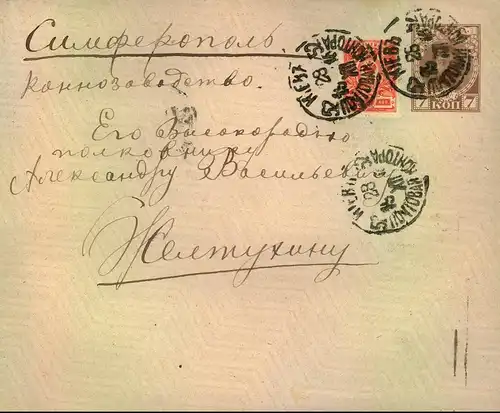 Симферополь.
Коннозаводство.
Его Высокородію
полковнику
Александру Васильевичу
Желтухину
7 КОП 7
КІЕВЪ
КІЕВЪ
КІЕВЪ